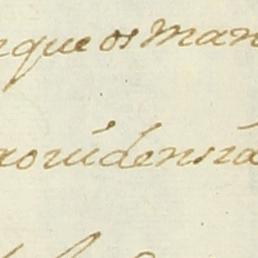 que os man
providensia